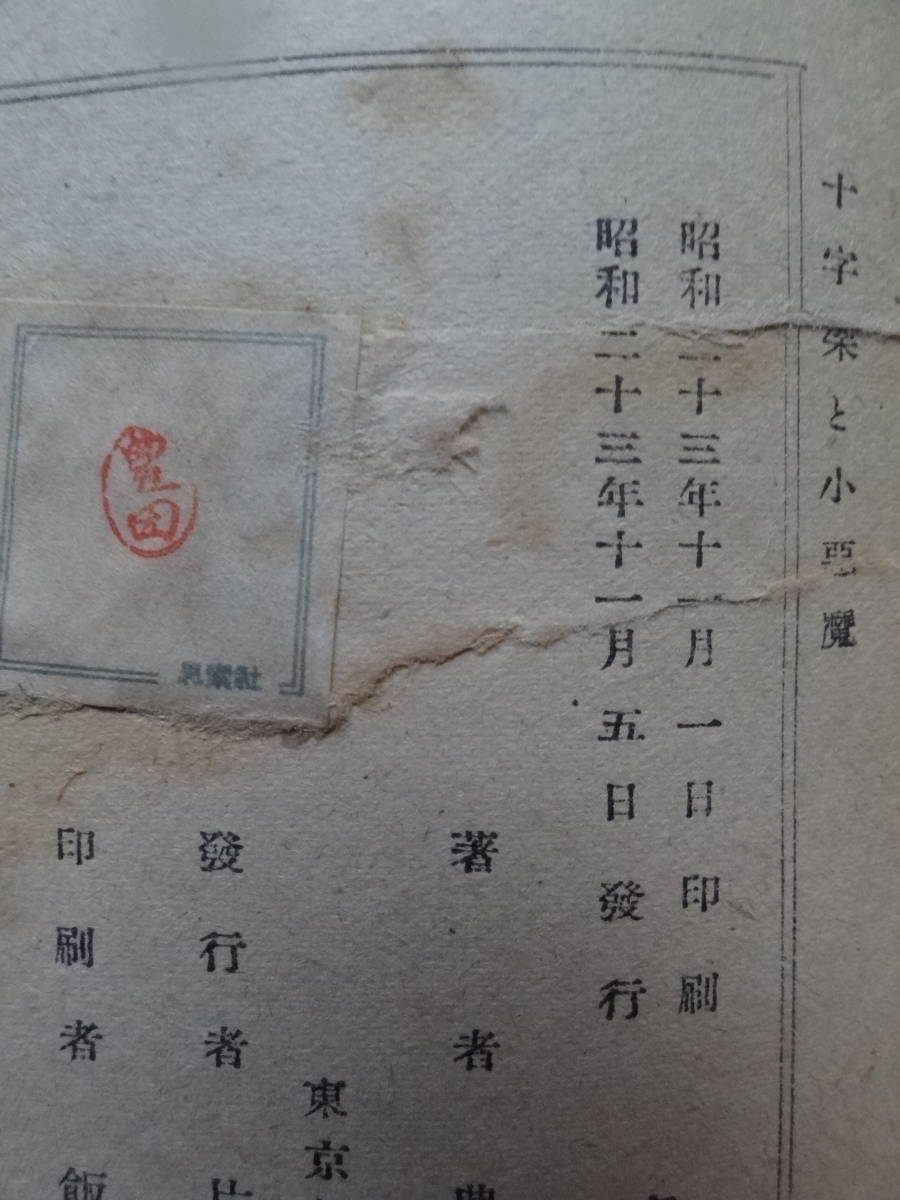 十字架と小悪魔
昭和二十三年十一月一日印刷
昭和二十三年十一月五日發行
著者
東京
發行者片
印刷者飯
豊田